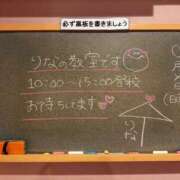 必ず黒板を書きましょう
りなの教室です
10:00~15:00学校
お待ちしてます
りな